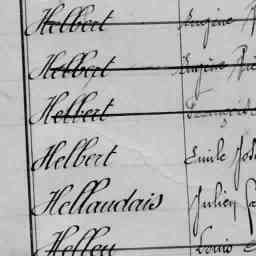 Helbert Eugène
Helbert Eugène
Helbert François
Helbert Emile Jos
Hellaudais Julien
Helleu Louis